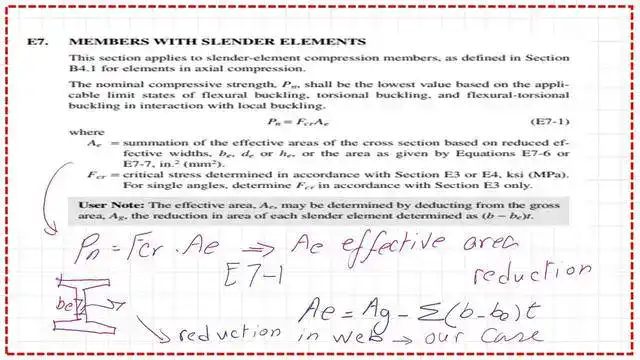 E7. MEMBERS WITH SLENDER ELEMENTS
This section applies to slender-element compression members, as defined in Section
B4.1 for elements in axial compression.
The nominal compressive strength, Pn, shall be the lowest value based on the appli-
cable limit states of flexural buckling, torsional buckling, and flexural-torsional
buckling in interaction with local buckling.
Pn = FcrAe (E7-1)
where
Ae = summation of the effective areas of the cross section based on reduced ef-
fective widths, be, de or he, or the area as given by Equations E7-6 or
E7-7, in.² (mm²).
Fcr = critical stress determined in accordance with Section E3 or E4, ksi (MPa).
For single angles, determine Fcr in accordance with Section E3 only.
User Note: The effective area, Ae, may be determined by deducting from the gross
area, Ag, the reduction in area of each slender element determined as (b − be)t.
Pn = Fcr . Ae ⇒ Ae effective area
E7-1 reduction
be
Ae = Ag - Σ(b-be) t
reduction in web → our case